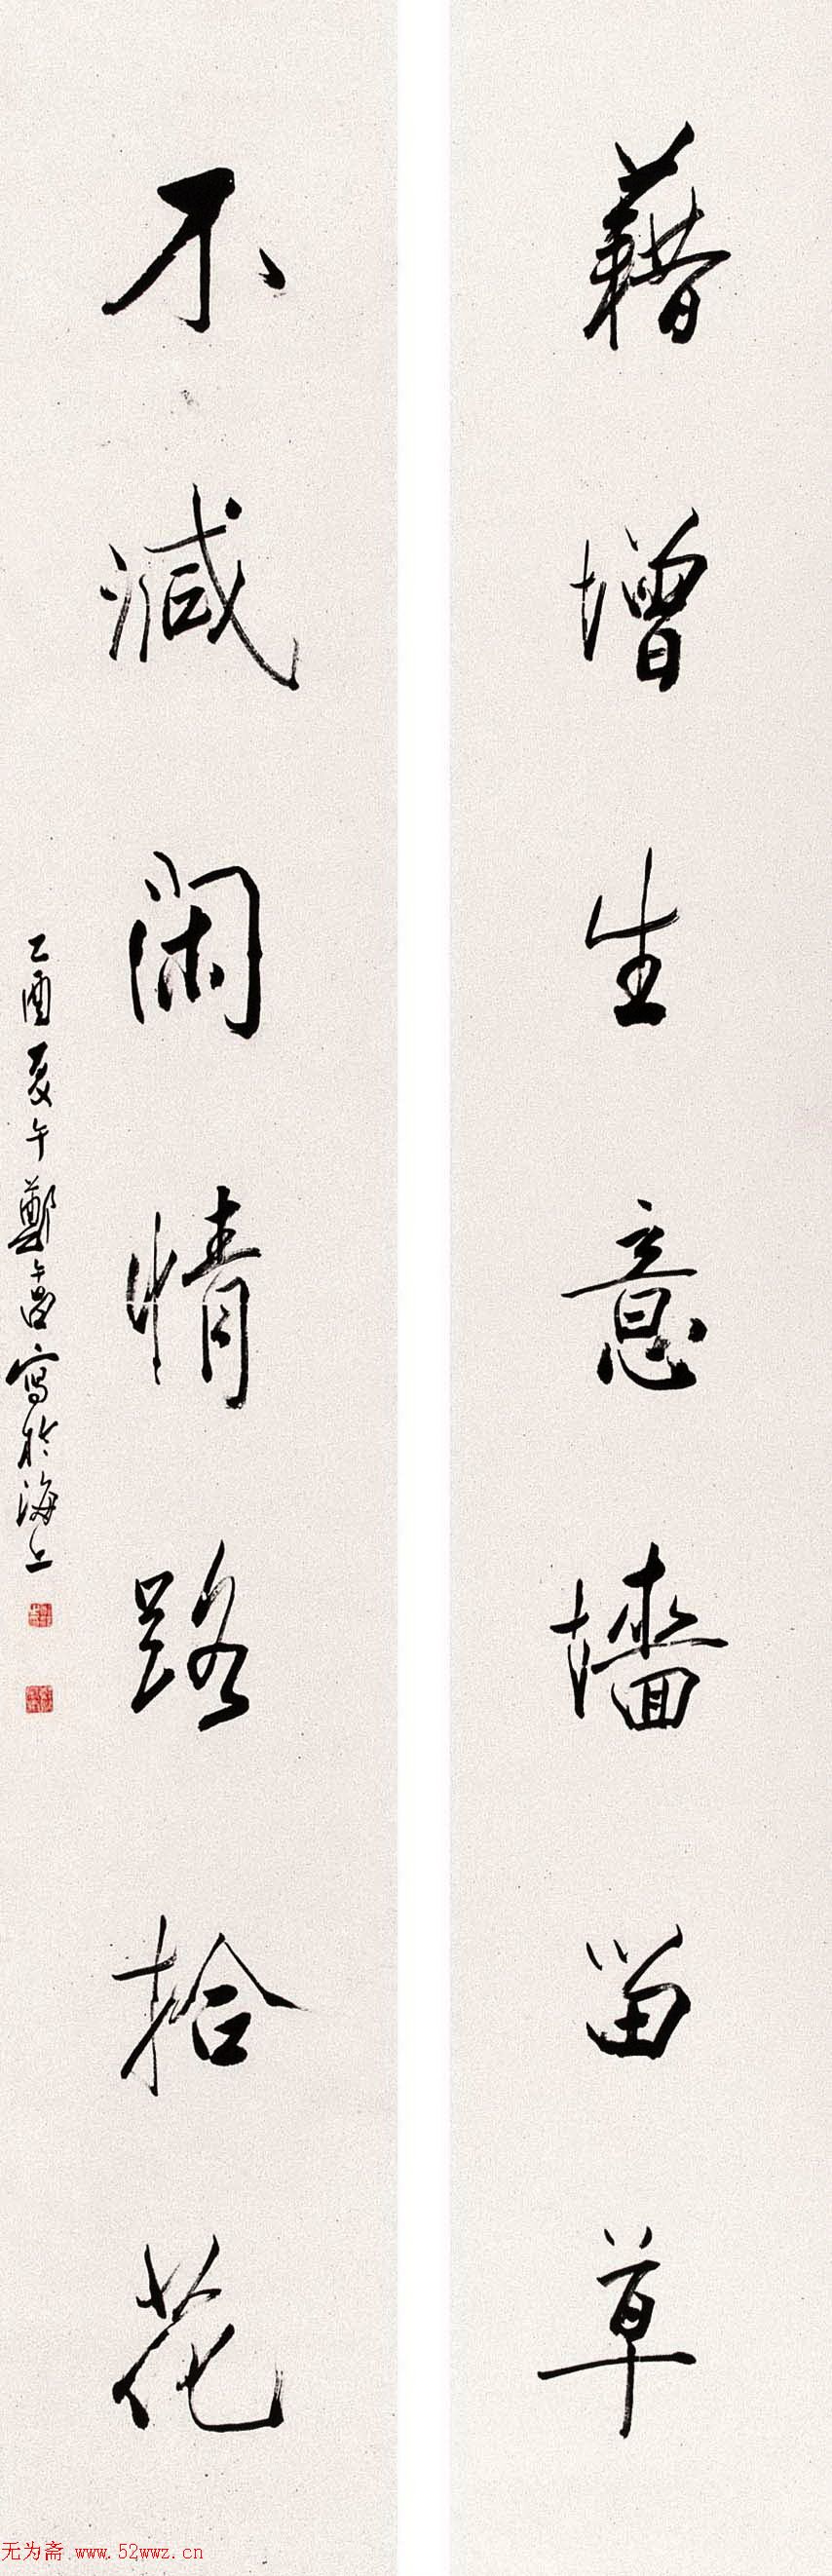 藉增生意墻留草
不減闲情路拾花
乙酉夏午鄭
寫於海上
无为斋 www.52wwz.cn